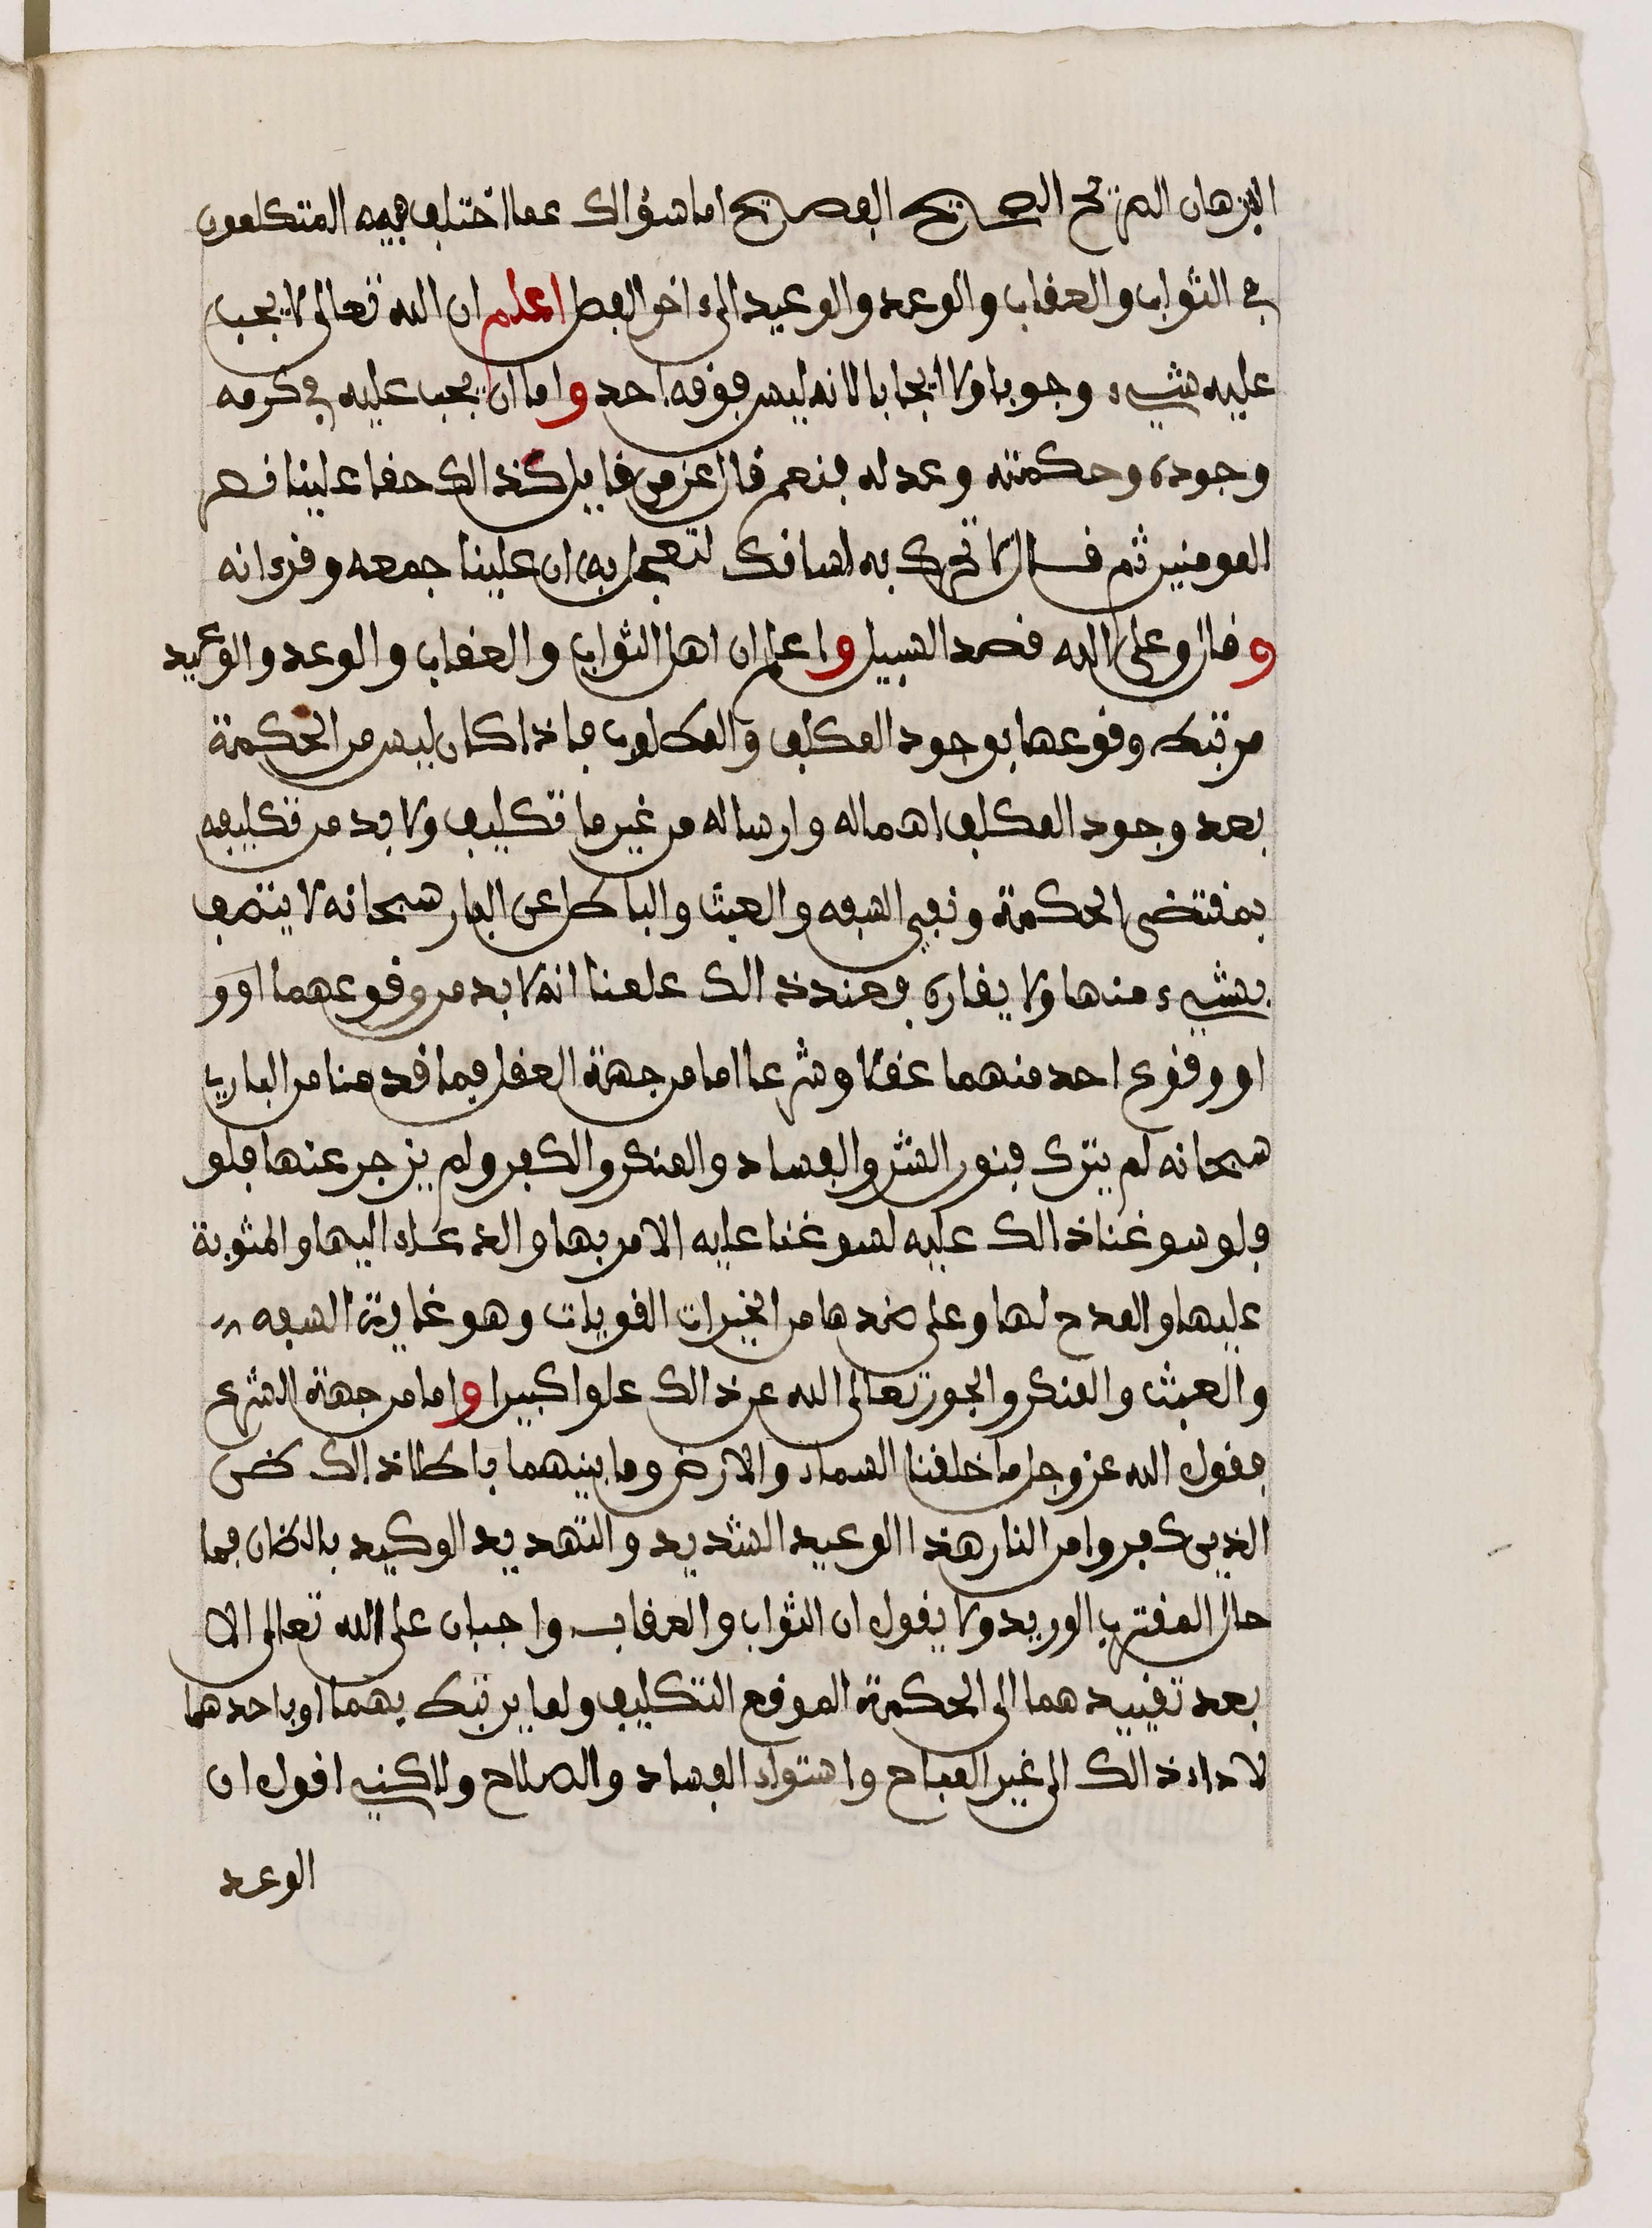 البرهان الصريح الصحيح الفصيح اما سؤالك عما اختلف فيه المتكلمون
في الثواب والعقاب والوعد والوعيد الى ءاخر الفصل اعلم ان الله تعالى لا يجب
عليه شيء وجوبا ولا ايجابا لانه ليس فوقه احد واما ان يجب عليه في كرمه
وجوده وحكمته وعدله فنعم قال عز من قايل كذالك حقا علينا نصر
المومنين ثم قال لا تحرك به لسانك لتعجل به ان علينا جمعه وقرءانه
وقال وعلى الله قصد السبيل واعلم ان اهل الثواب والعقاب والوعد والوعيد
مرتبط وقوعها بوجود المكلف والمكلفون فاذا كان ليس من الحكمة
بعد وجود المكلف اهماله وارساله من غير ما تكليف ولا بد من تكليفه
بمقتضى الحكمة ونفي السفه والعبث والباطل عن البار سبحانه لا يتصف
بشيء منها ولا يقاره فعند ذالك علمنا انه لا بد من وقوعهما او و
او وقوع احد منهما عقلا وشرعا اما من جهة العقل فيما قدمنا من الباري
سبحانه لم يترك فنون الشر والفساد والمنكر والكفر ولم يزجر عنها فلو
فلو سوغنا ذالك عليه لسوغنا عليه الامر بها والدعاء اليها والمثوبة
عليها والمدح لها وعلى ضدها من الخيرات القويات وهو غاية السفه
والعبث والمنكر والجور تعالى الله عن ذالك علوا كبيرا واما من جهة الشرع
فقول الله عز وجل ما خلقنا السماء والارض وما بينهما باطلا ذالك ظن
الذين كفروا من النار هذا الوعيد الشديد والتهديد الوكيد بالظان فما
حال المفتري الوريد ولا يقول ان الثواب والعقاب واجبان على الله تعالى الا
بعد تقييدهما الى الحكمة الموقع التكليف ولما يرتبط بهما او باحدهما
لاداء ذالك الى غير المباح واستواء الفساد والصلاح ولاكني اقول ان
الوعد